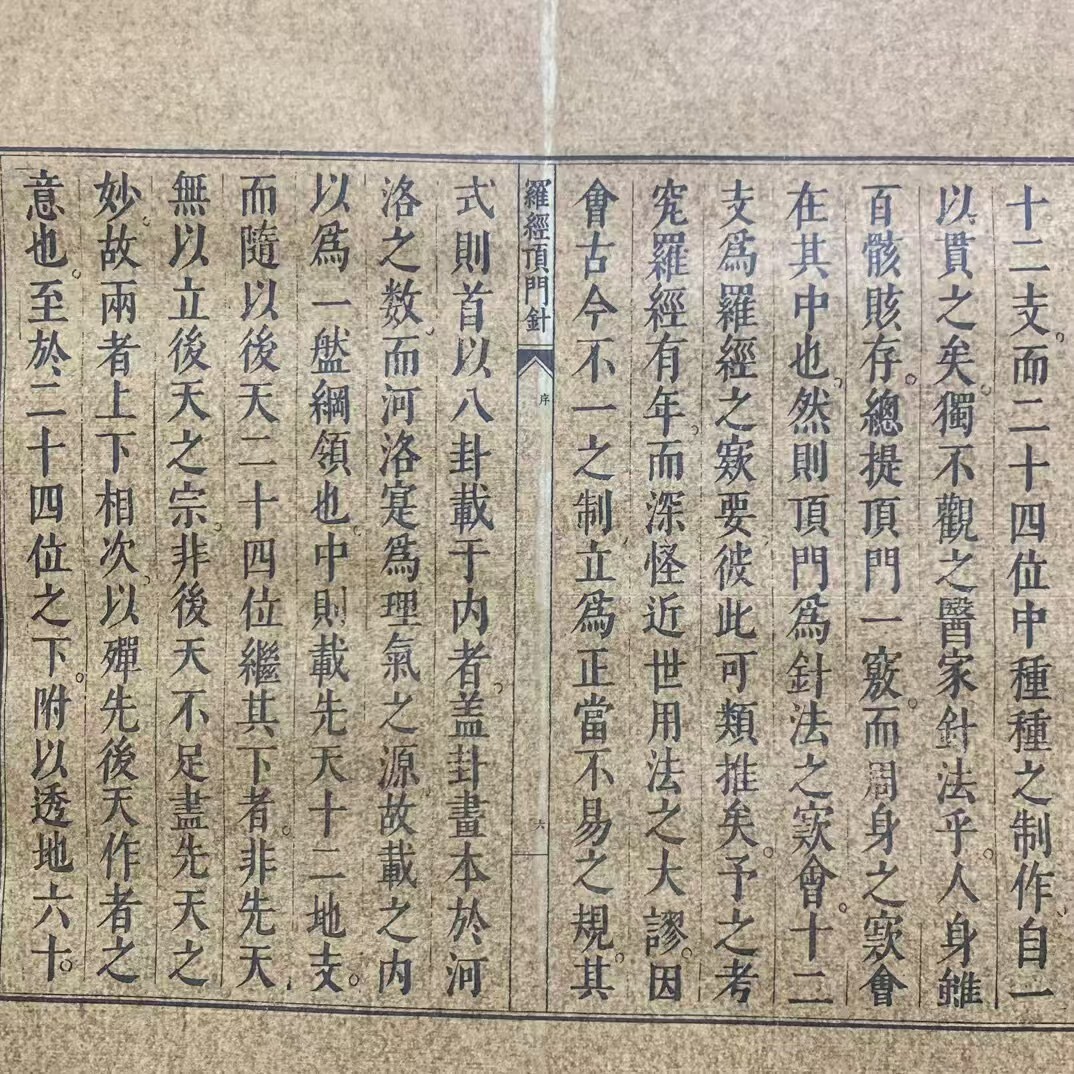 十二支。而二十四位中種種之制作。自一
以貫之矣。獨不觀之醫家針法乎。人身雖
百骸賅存。總提頂門一竅。而周身之窽會
在其中也。然則頂門爲針法之窽會。十二
支爲羅經之窽要。彼此可類推矣。予之考
究羅經有年。而深怪近世用法之大謬。因
會古今不一之制。立爲正當不易之規。其
羅經頂門針
序
六
式則首以八卦載于内者。盖卦畫本於河
洛之数。而河洛寔爲理氣之源。故載之内
以爲一盤綱領也。中則載先天十二地支。
而隨以後天二十四位繼其下者。非先天
無以立後天之宗。非後天不足盡先天之
妙。故兩者上下相次。以殫先後天作者之
意也。至於二十四位之下。附以透地六十。